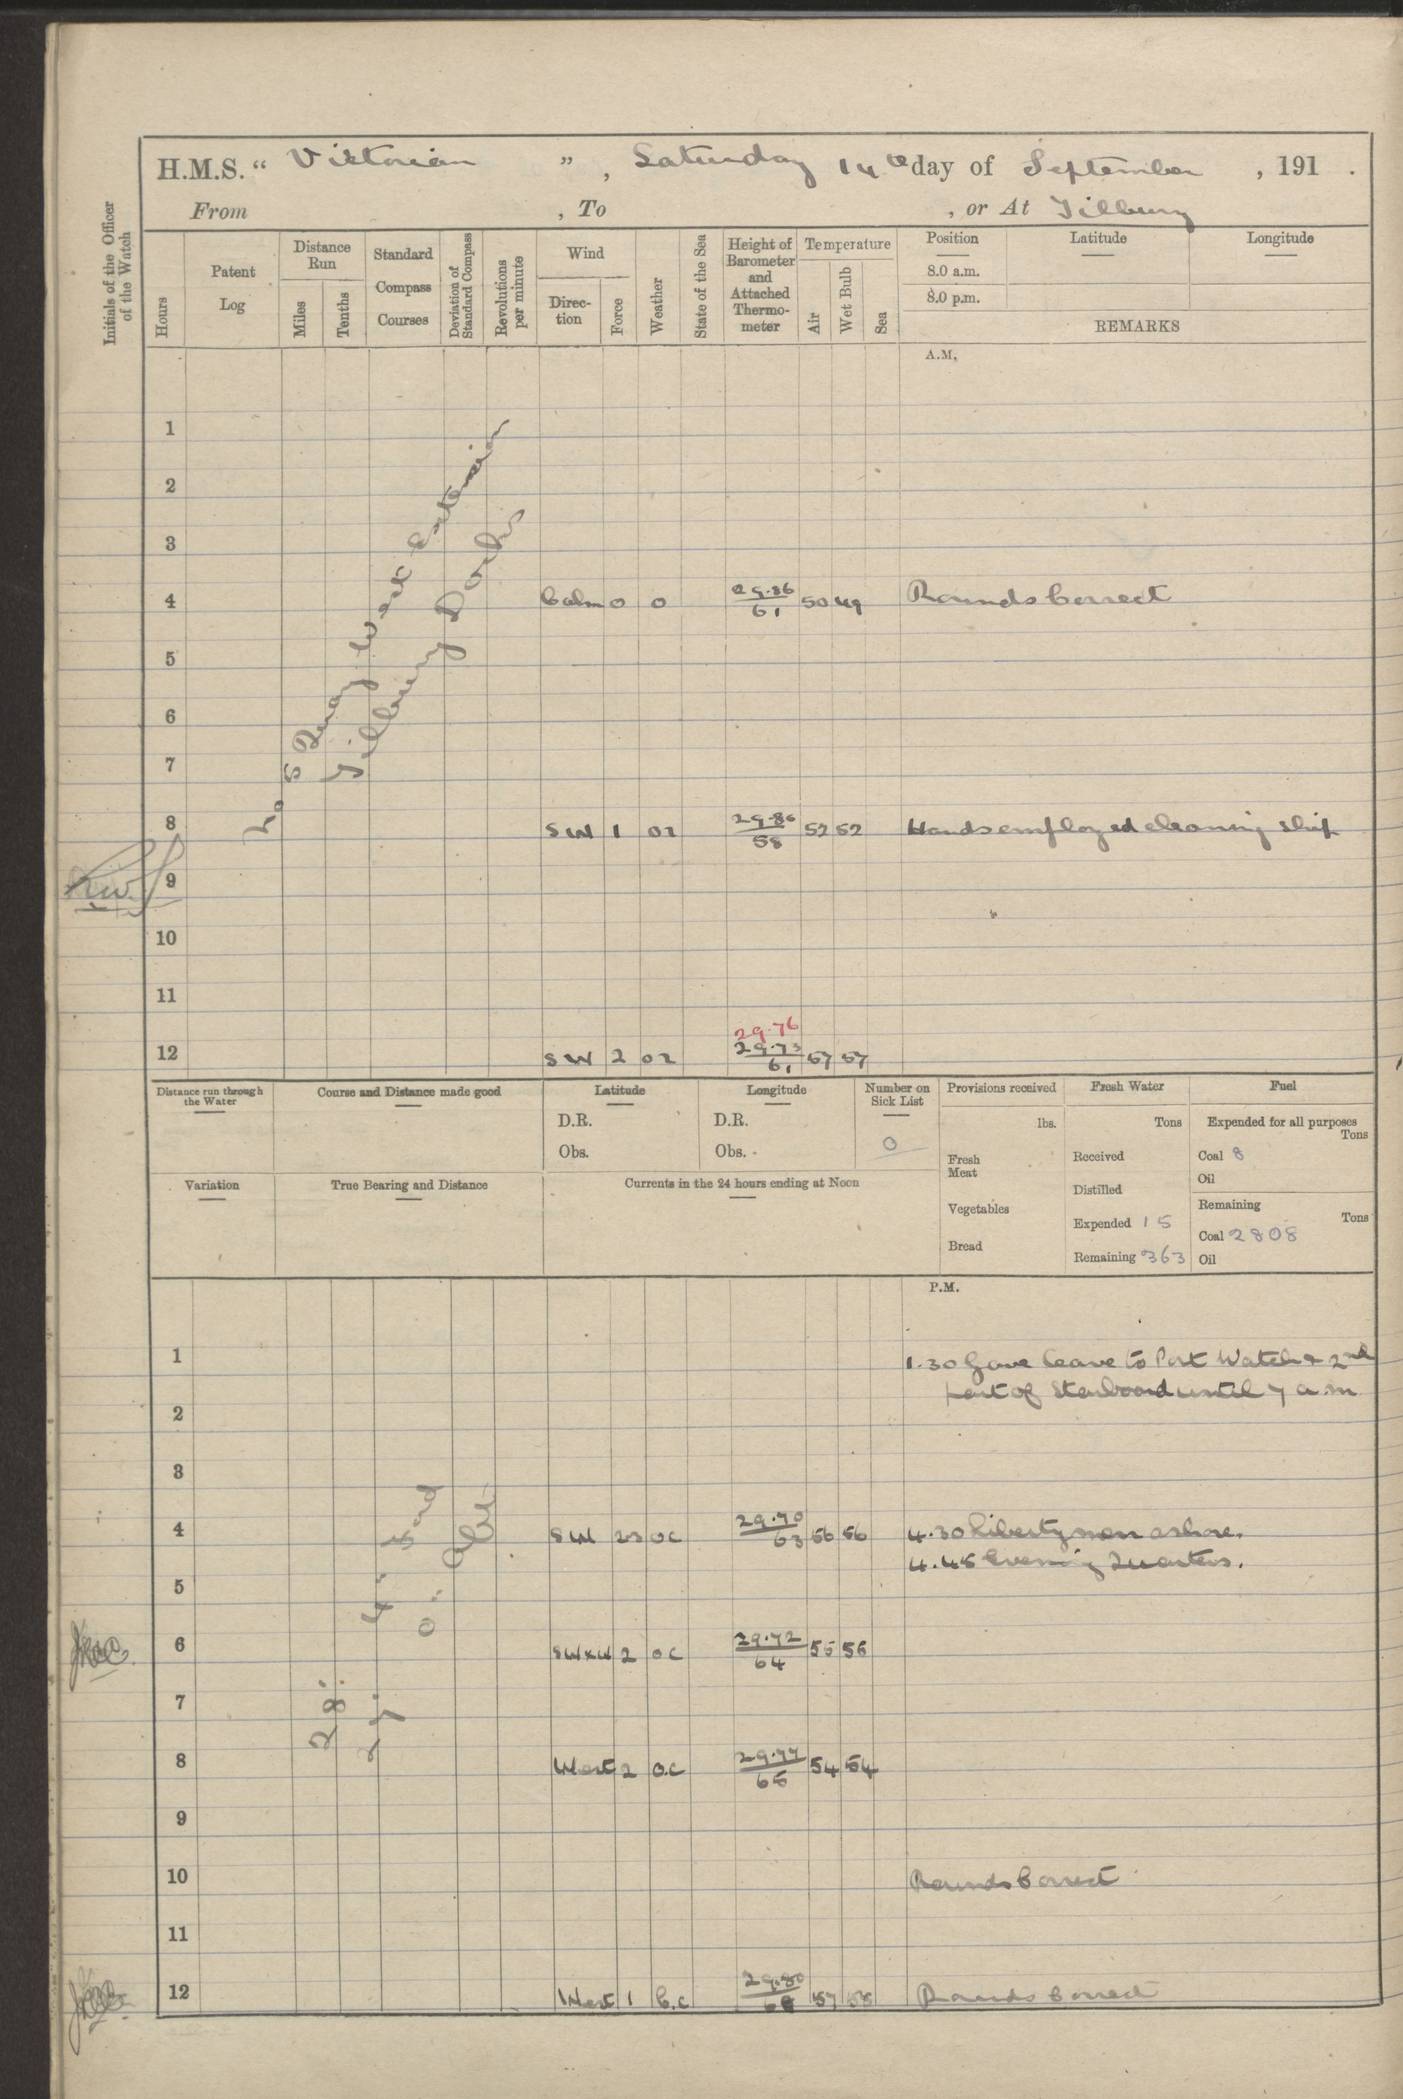 H.M.S. “ Victorian ”, Saturday 14th day of September , 191 .
From , To , or At Tilbury
Initials of the Officer of the Watch
Hours
Patent Log
Distance Run
Miles
Tenths
Standard Compass Courses
Deviation of Standard Compass
Revolutions per minute
Wind
Direc-tion
Force
Weather
State of the Sea
Height of Barometer and Attached Thermo-meter
Temperature
Air
Wet Bulb
Sea
Position
8.0 a.m.
8.0 p.m.
Latitude
Longitude
REMARKS
A.M.
1
2
3
4 Calm 0 0 29.86/61 50 49 Rounds Correct
5
6
7
8 SW 1 0 2 29.86/58 52 52 Hands employed cleaning ship
9
10
11
29.76
12 SW 2 0 2 29.73/61 57 57
No 5 Quay West Extension
Tilbury Docks
Distance run through the Water
Course and Distance made good
Latitude
D.R.
Obs.
Longitude
D.R.
Obs.
Number on Sick List
0
Provisions received
lbs.
Fresh Meat
Vegetables
Bread
Fresh Water
Tons
Received
Distilled
Expended 15
Remaining 363
Fuel
Expended for all purposes
Tons
Coal 8
Oil
Remaining
Tons
Coal 2808
Oil
Variation
True Bearing and Distance
Currents in the 24 hours ending at Noon
P.M.
1 1.30 Gave leave to Port Watch & 2nd
part of Starboard until 7 a.m
2
3
4 SW 23 OC 29.70/63 56 56 4.30 Liberty men ashore.
4.45 Evening Quarters.
5
6 SWxW 2 OC 29.72/64 55 56
7
8 West 2 O.C 29.77/65 54 54
9
10 Rounds Correct
11
12 West 1 b.c 29.80/68 57 58 Rounds Correct
28' 4" Ford
27' 0" Aft